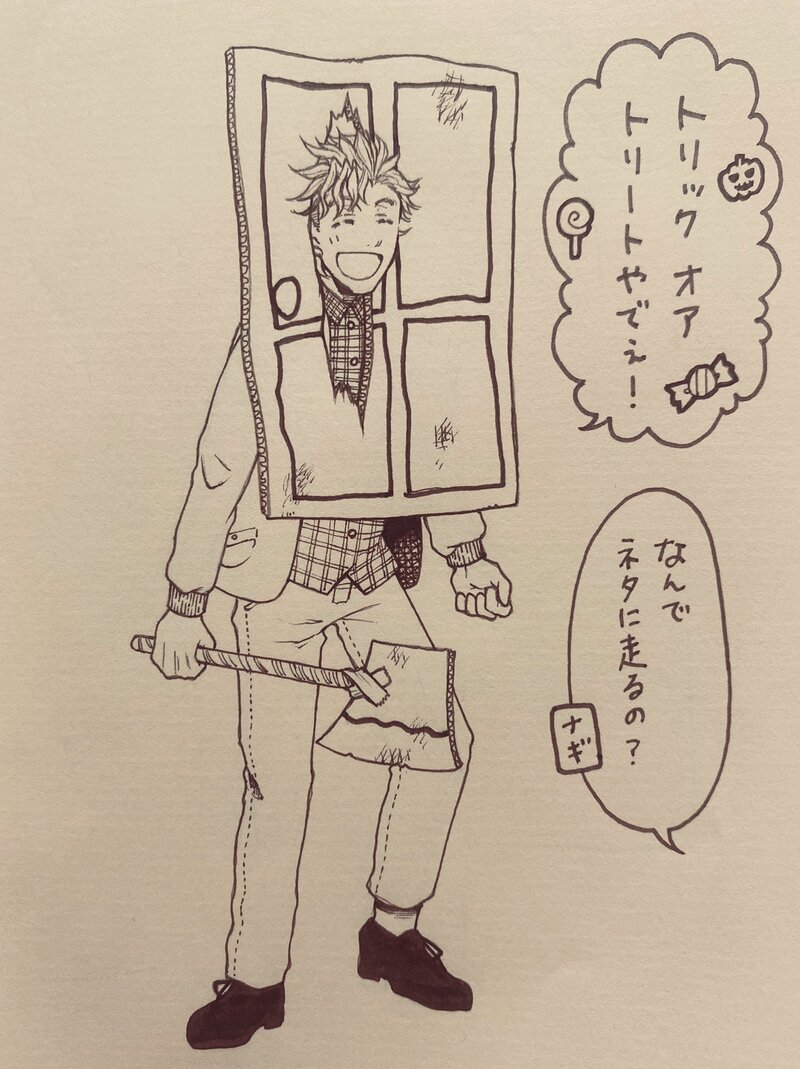 トリック オア
トリートやでぇ!
なんで
ネタに走るの?
ナギ